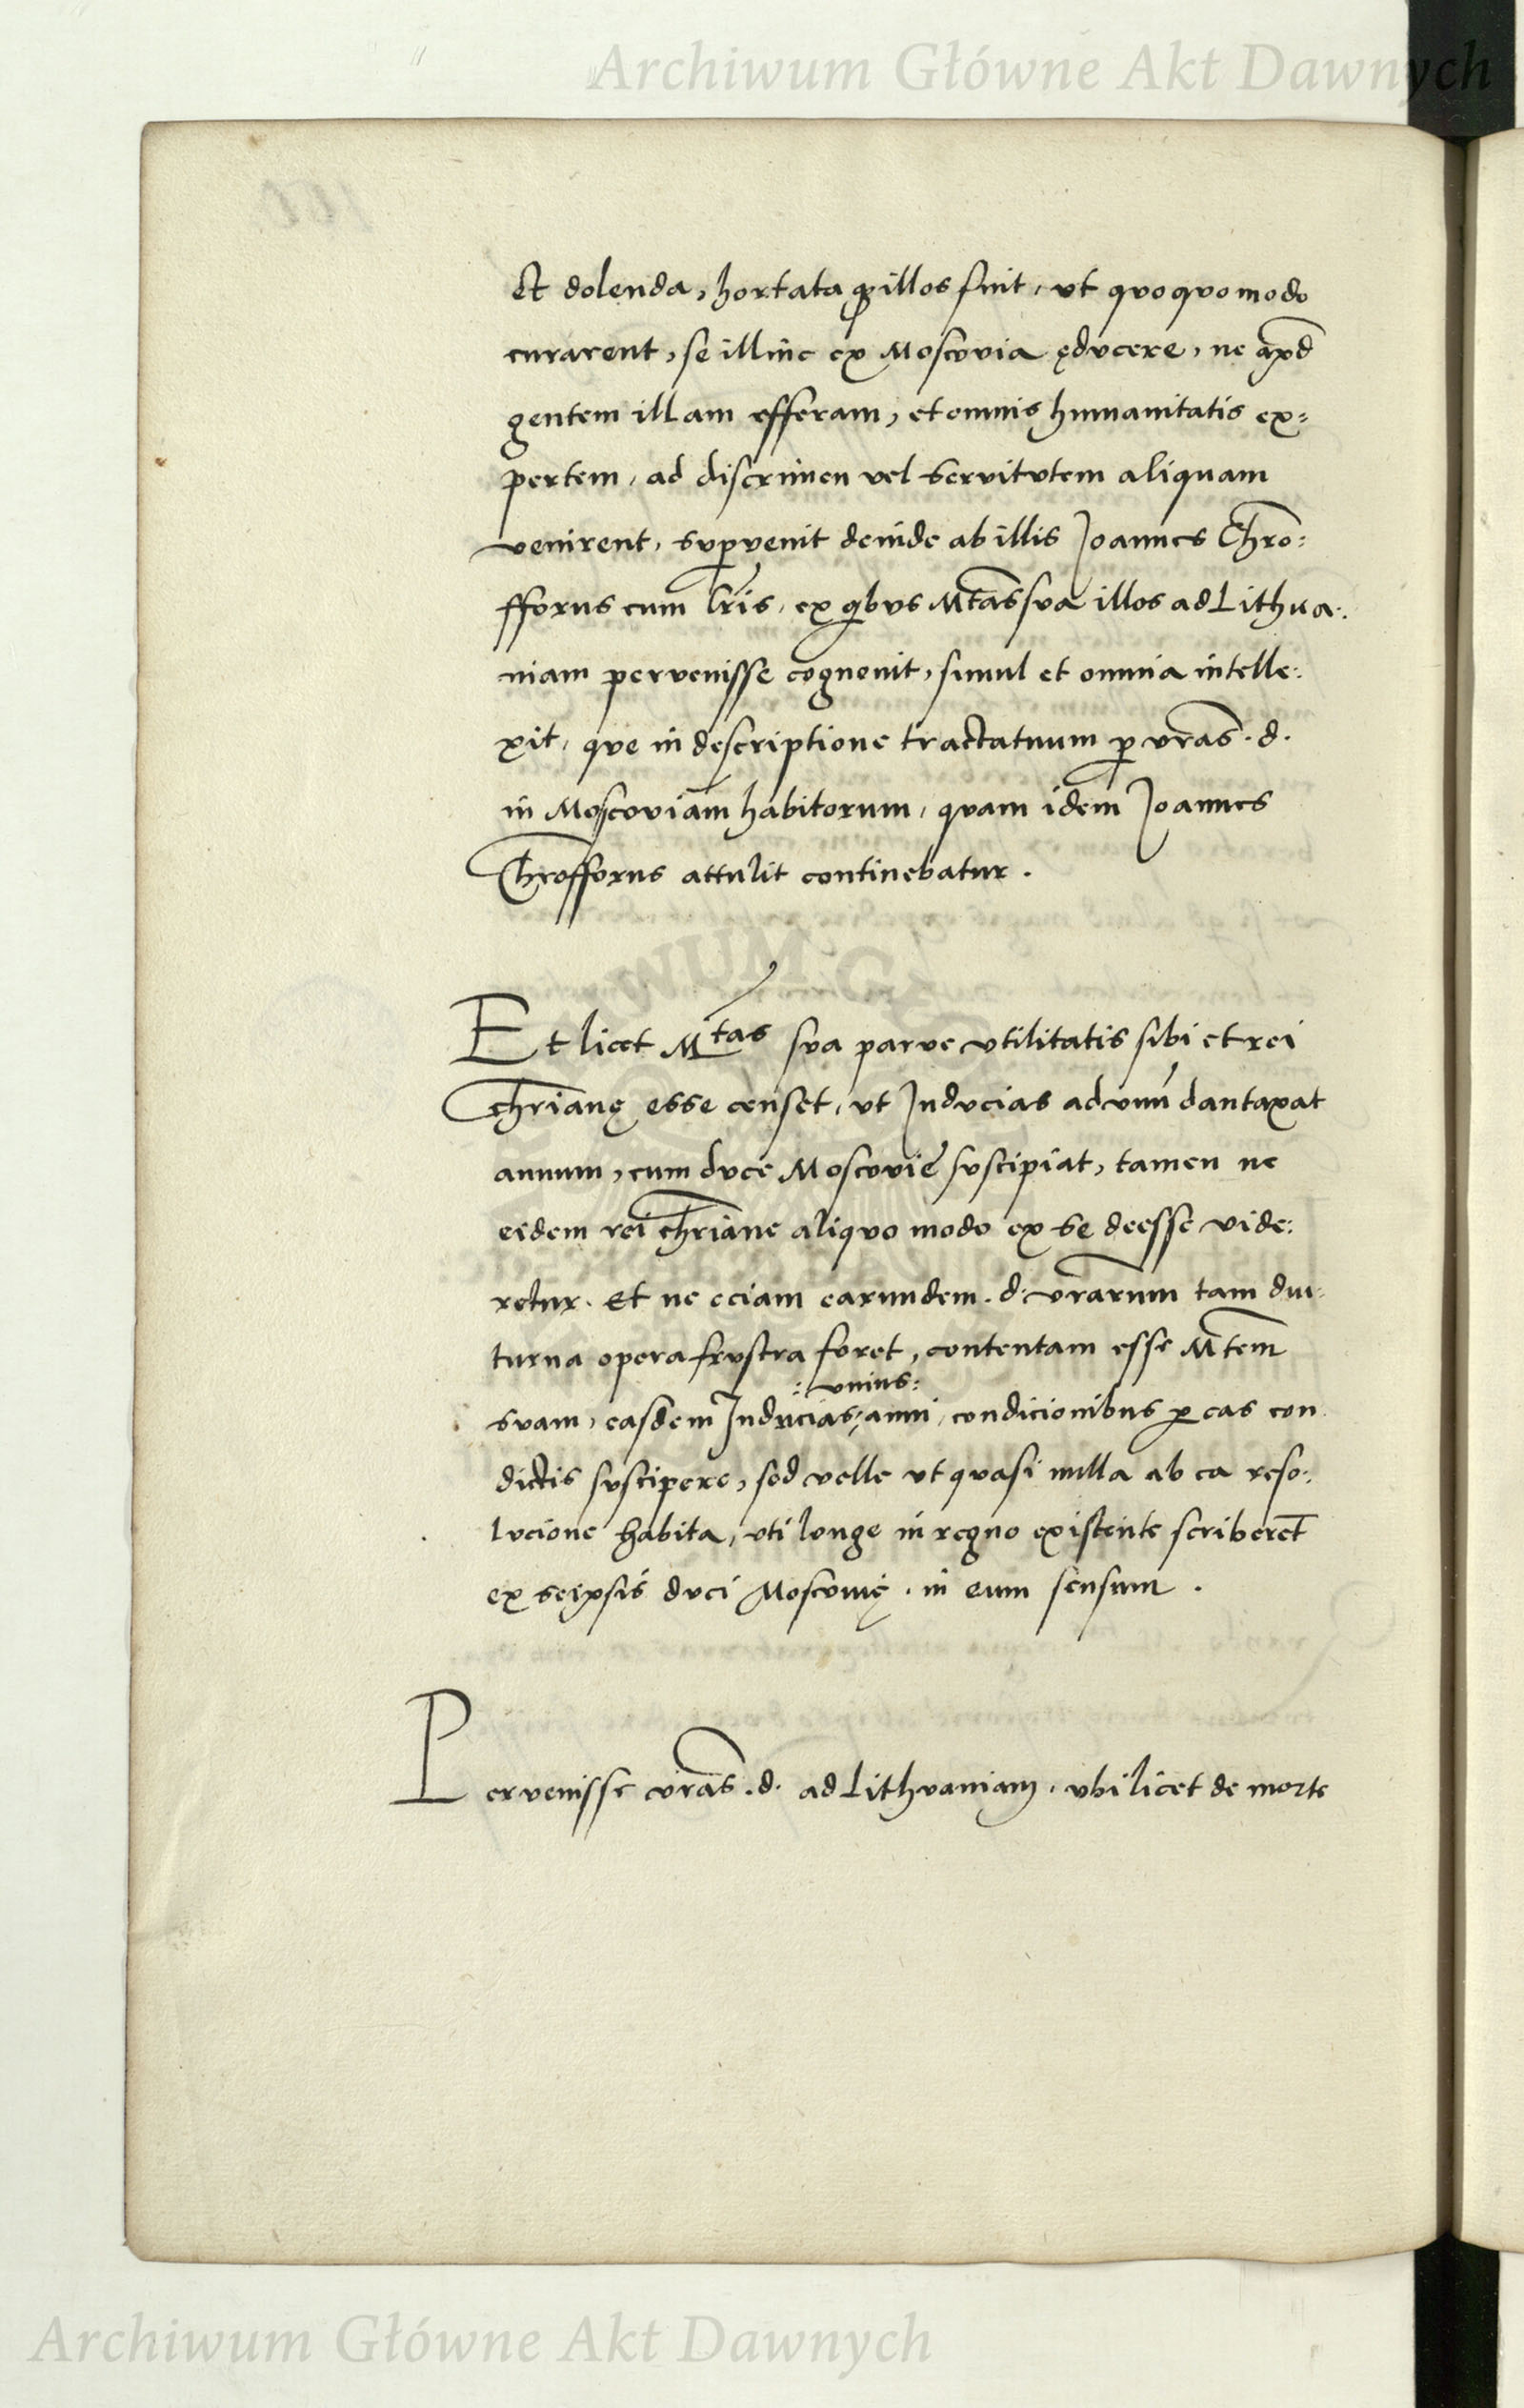 Archiwum Główne Akt Dawnych
et dolenda, hortataq̃ illos fuit, ut quoquomodo
curarent, se illinc ex Moscovia ęducere, ne apud̃
gentem illam efferam, et omnis humanitatis ex=
pertem, ad discrimen vel servitutem aliquam
venirent, supvenit deinde ab illis Joannes Chro:
fforus cum lr̃is, ex qibus Mtãs sua illos ad Lithua:
niam pervenisse cognovit, simul et omnia intelle:
xit, que in descriptione tractatuum p vrãs. d.
in Moscoviam habitorum, quam idem Joannes
Chrofforus attulit continebatur.
Et licet Mtas sua parve utilitatis sibi et rei
chr̃ianę esse censet, ut Inducias ad unũ dantaxat
annum, cum duce Moscovie suscipiat, tamen ne
eidem rei chr̃iane aliquo modo ex se deesse vide:
retur. Et ne eciam earundem. d. vr̃arum tam diu:
turna opera frustra foret, contentam esse Mtem̃
:unius:
suam, easdem Inducias, anni, condicionibus p eas con
dictis suscipere, sed velle ut quasi nulla ab ea reso:
lucione habita, uti longe in regno existente scriberet̃
ex seipsis duci Moscovię. in eum sensum.
Pervenisse vrãs. d. ad Lithvaniam, ubi licet de morte
Archiwum Główne Akt Dawnych